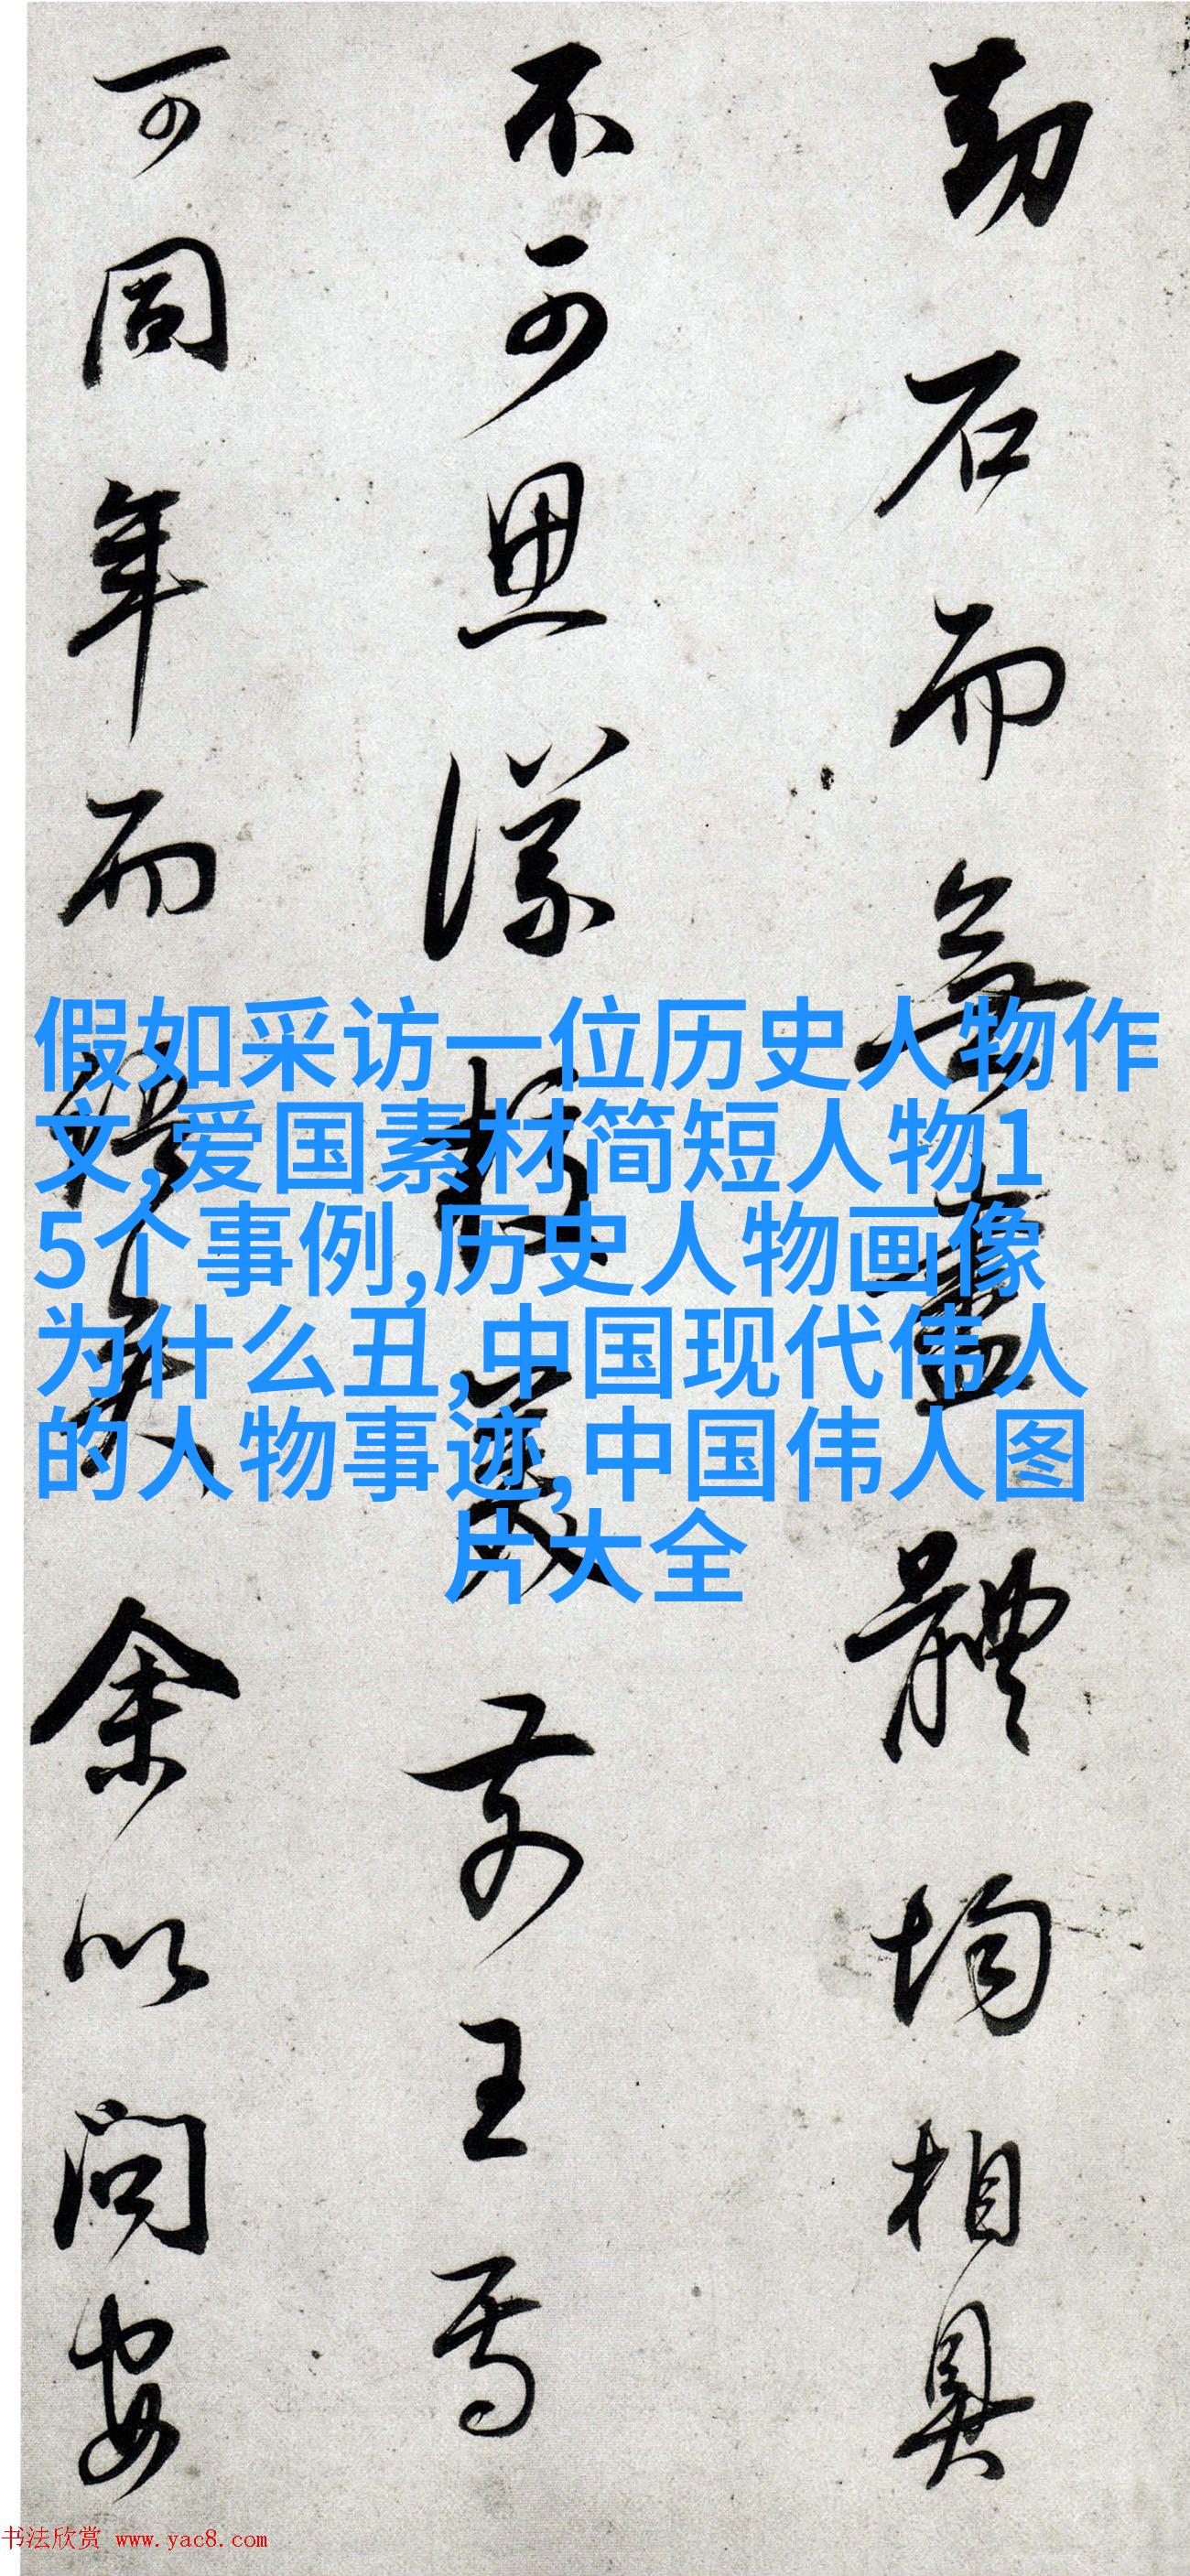 劫石而無盡體均相具
不可思議
前王焉
可同年而
余以问安
假如采访一位历史人物作
文,爱国素材简短人物1
5个事例,历史人物画像
为什么丑,中国现代伟人
的人物事迹,中国伟人图
片大全
书法欣赏 www.yac8.com